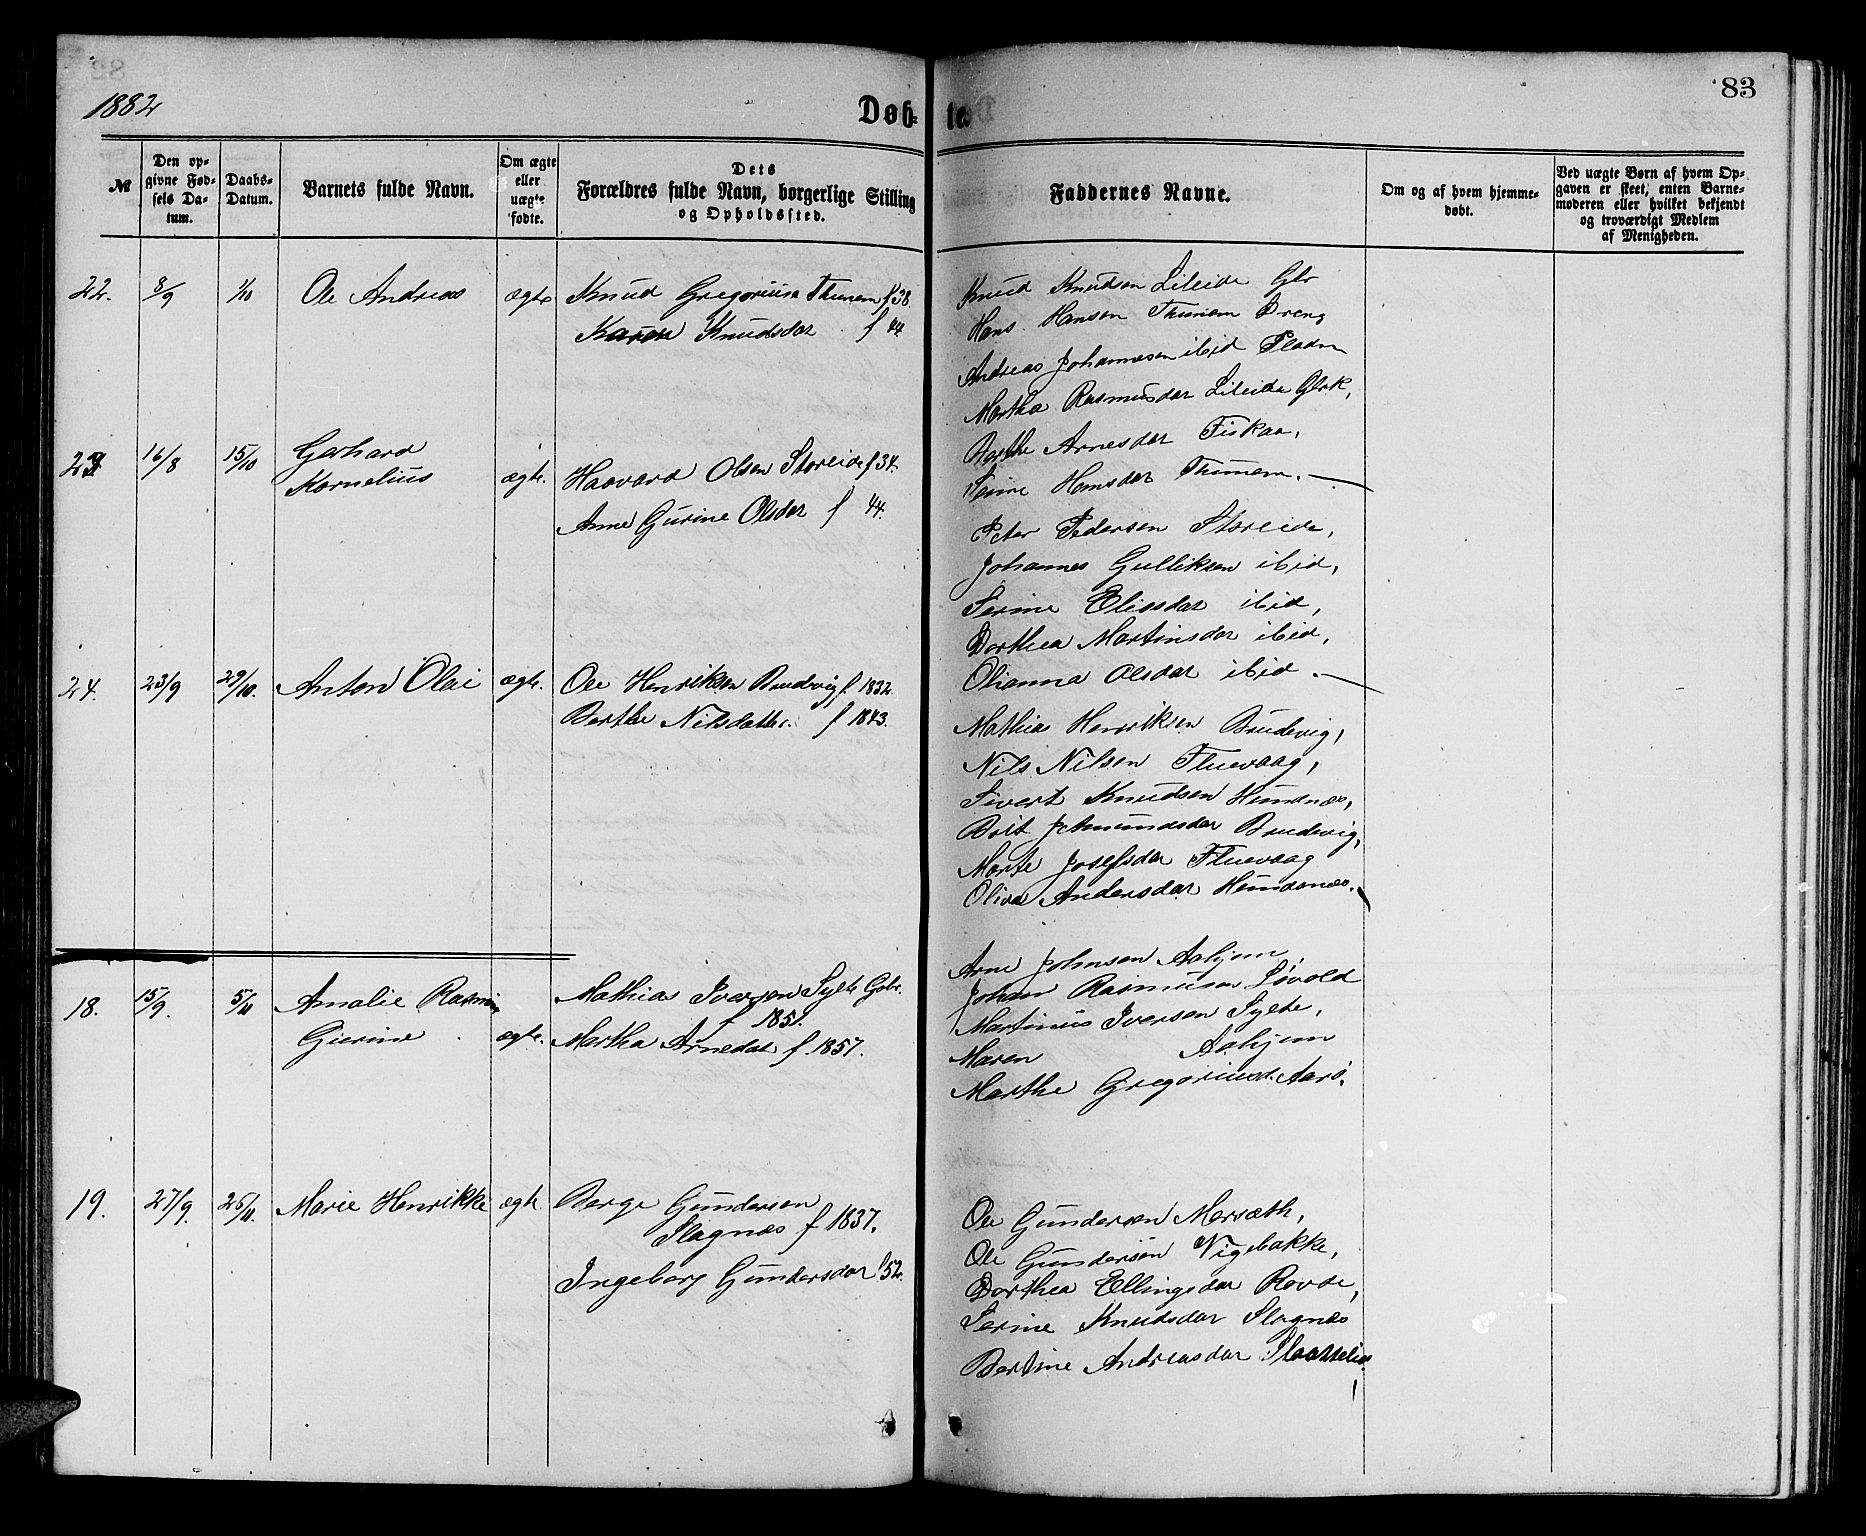 1882
Døb-
te.
83
№
Den op-
givne Fød-
sels Da-
tum.
Daabs-
Datum.
Barnets fulde Navn.
Om ægte
eller
uægte
fødte.
Dets
Forældres fulde Navn, borgerlige Stilling
og Opholdssted.
Faddernes Navne.
Om og af hvem hjemme-
døbt.
Ved uægte Børn af hvem Op-
gaven er skeet, enten Barne-
moderen eller hvilket bekjendt
og troværdigt Medlem
af Menigheden.
22. 3/9 1/10 Ole Andreas ægte Knud Gregoriusen Thunem f 38.
Karen Knudsdar f 44.
Knud Knudsen Lileide Gbr
Hans Hansen Thunem Dreng
Andreas Johannesen ibid
Martha Rasmusdar Lileide Gbrk,
Berthe Arnesdar Fiskaa,
Sirine Hansdar Thunem.
23 16/8 15/10 Gerhard
Kornelius ægte. Haavard Olsen Storeide f 34.
Anne Gurine Olsdar f 44.
Peter Pedersen Storeide,
Johannes Gulliksen ibid,
Serine Eliasdar ibid,
Dorthea Martinsdar ibid,
Olianna Olsdar ibid.
24. 23/9 29/10. Anton Olai ægte. Ole Henriksen Brudevig f. 1832.
Berthe Nilsdatter. f 1843.
Mathias Henriksen Brudevig,
Nils Nilsen Fluevaag,
Sivert Knudsen Hundnæs,
Brit Amundsdar Brudevig,
Marte Josefsdar Fluevaag
Oliva Andersdar Hundsnæs.
18. 15/9. 5/11 Amalie Rasmine
Gurine ægte. Mathias Iversen Sylte Gbr.
f 1851.
Martha Arnedat f. 1857.
Arne Johnsen Aahjem,
Johan Rasmusen Løvold
Martinus Iversen Sylte,
Maren Aahjem
Marthe Gregoriusd. Aarö.
19. 27/9. 26/11. Marie Henrikke ægte. Berge Gundersen
Slagnæs f 1837.
Ingeborg Gundersdar f 52.
Ole Gundersen Mersæth,
Ole Gundersen Vigebakke,
Dorthea Ellingsdar Rovde,
Serine Knudsdar Slagnæs
Bertine Andreasdar